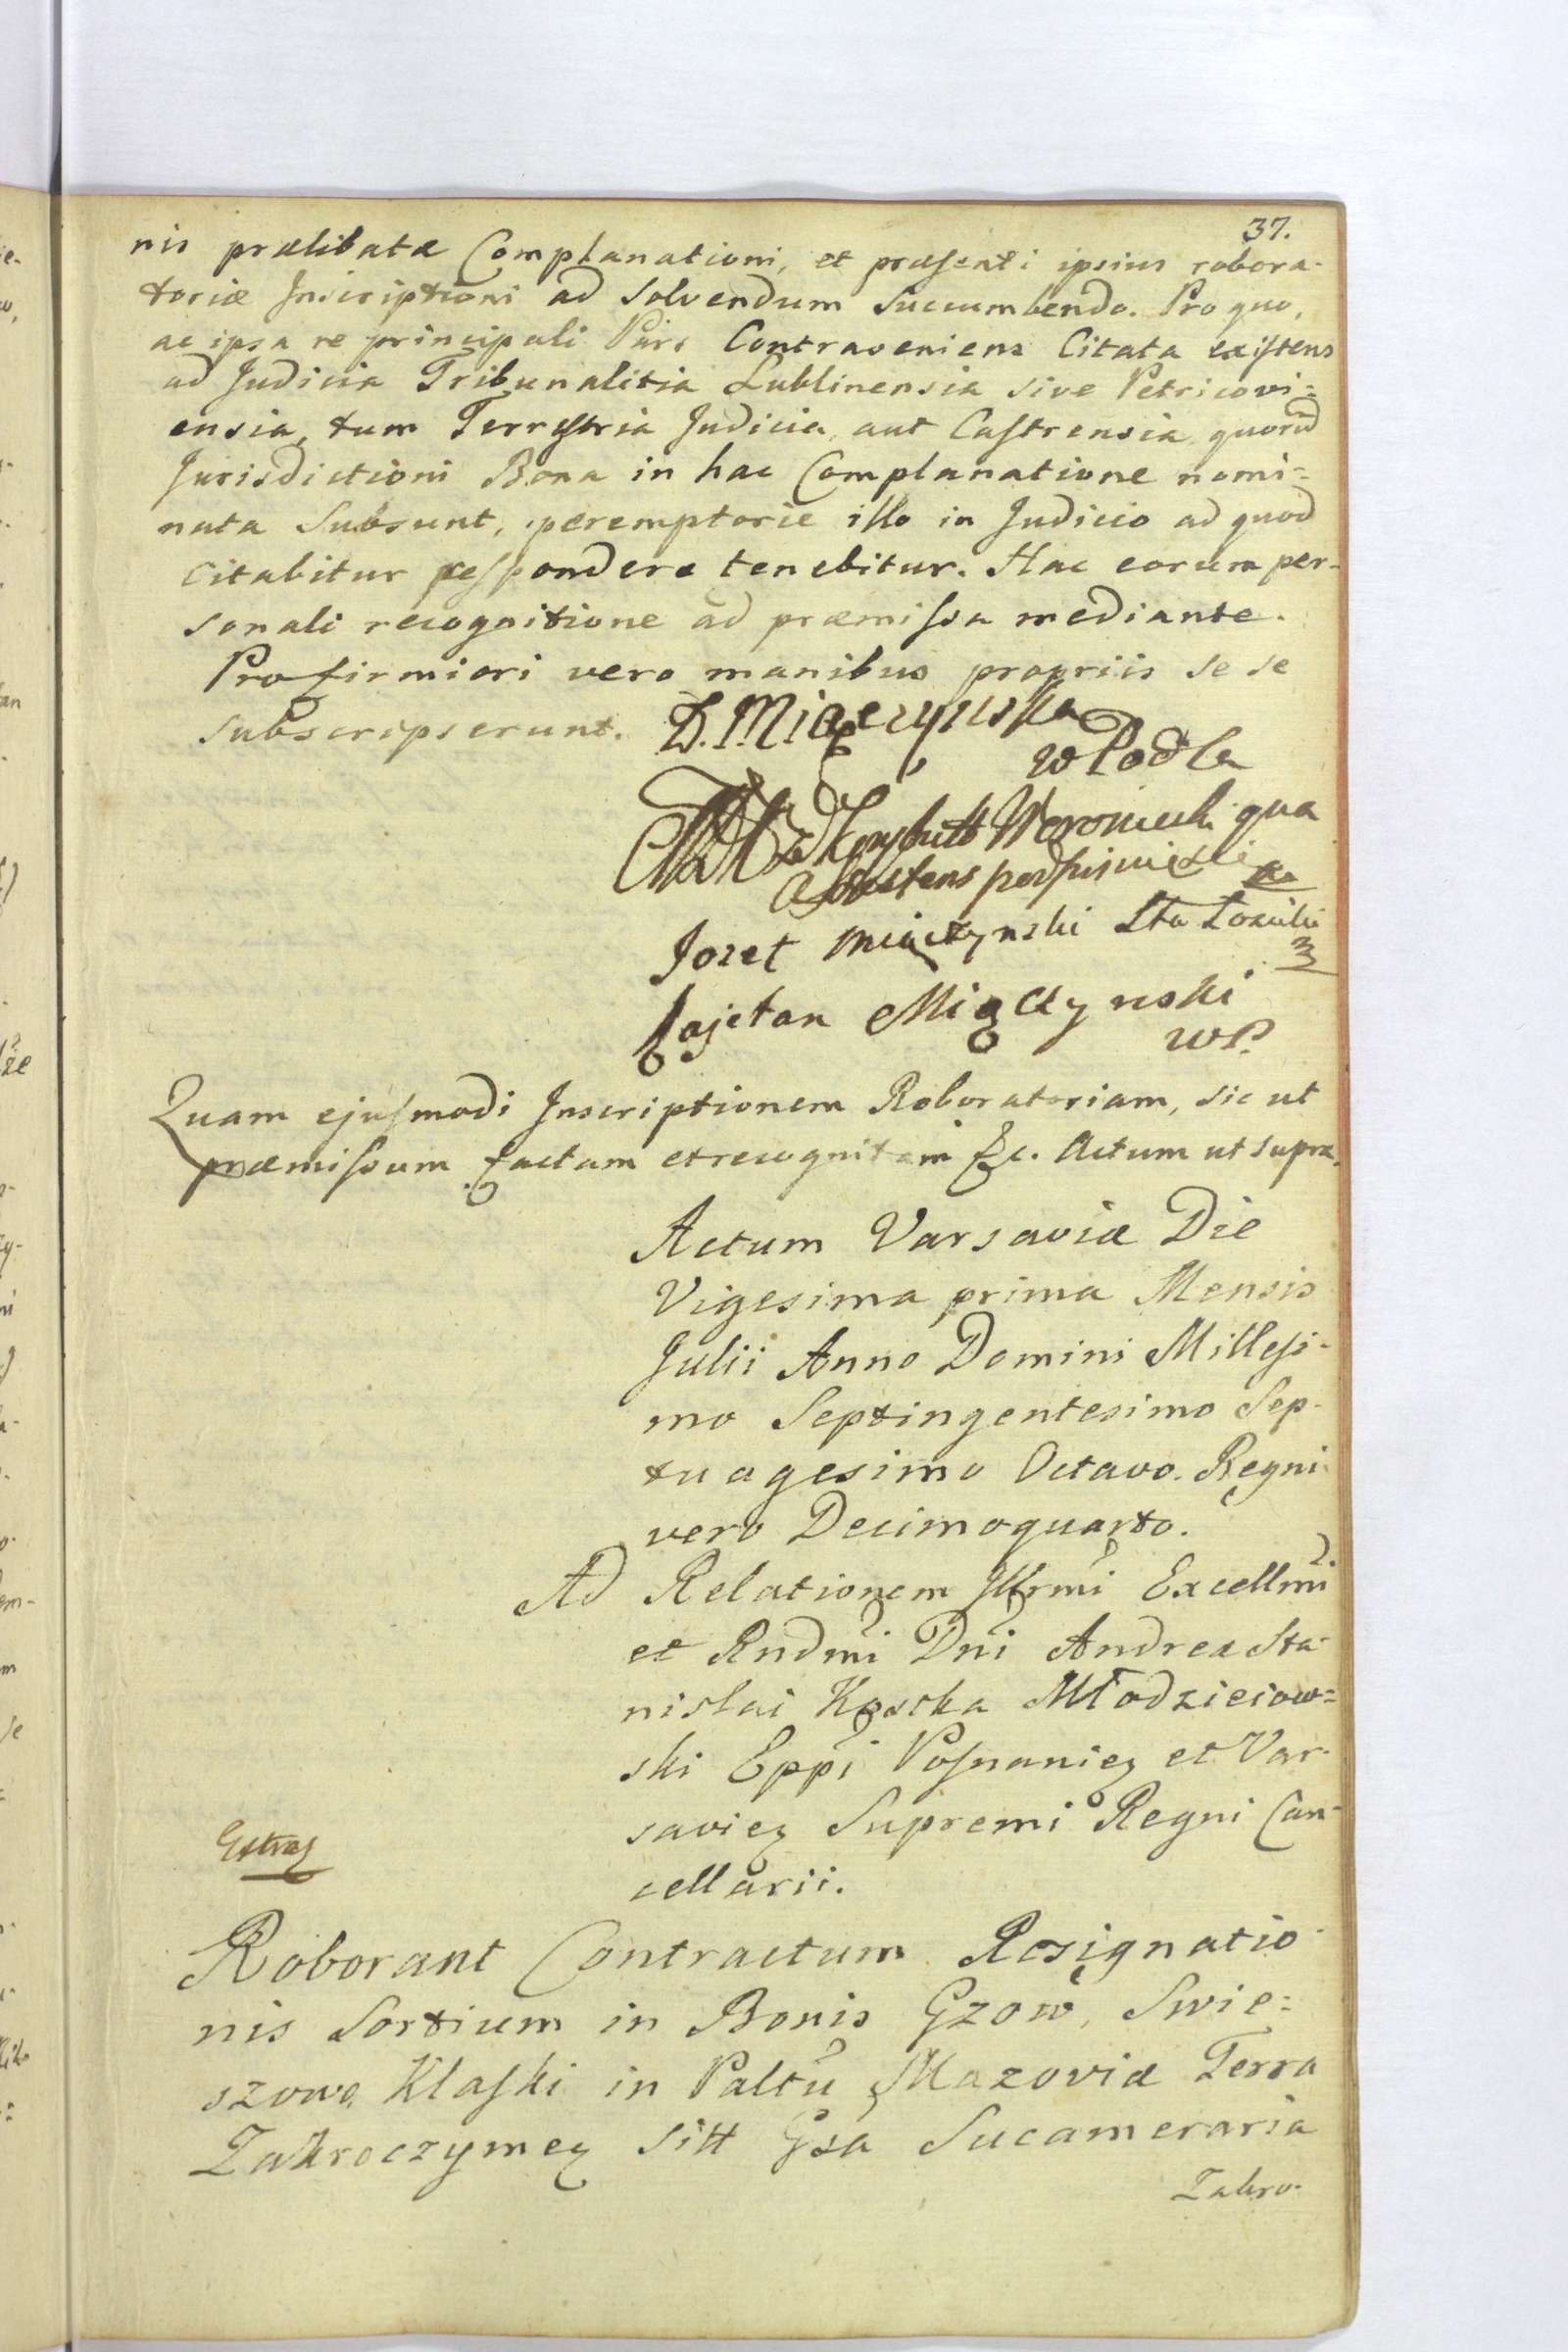 37.
nis prælibatæ Complanationi, et præsenti ipsius robora-
toriæ Inscriptioni ad solvendum succumbendo. Pro quo,
ac ipsa re principali Pars Contraveniens Citata existens
ad Judicia Tribunalitia Lublinensia sive Petricovi=
ensia, tum Terrestria Judicia, aut Castrensia quorū
Jurisdictioni Bona in hac Complanatione nomi=
nata subsunt, peremptorie illo in Judicio ad quod
citabitur respondere tenebitur. Hac eorum per-
sonali recognitione ad præmissa mediante.
Pro firmiori vero manibus propriis se se
subscripserunt. D. Miączynska
w Podla
Woroniecki qua
assistens podpisuię się
Jozef Miączynski Sta Łosicki
Kajetan Miączynski
WP.
Quam ejusmodi Inscriptionem Roboratoriam, sic ut
præmissum factam et recognitam &c. Actum ut supra.
Actum Varsaviæ Die
Vigesima prima Mensis
Julii Anno Domini Millesi-
mo Septingentesimo Sep-
tuagesimo Octavo. Regni
vero Decimoquarto.
Ad Relationem Illrmi Excellmi
et Rndmi Dni Andreæ Sta-
nislai Kostka Młodzieiow=
ski Eppi Posnanieȝ et Var-
savieȝ Supremi Regni Can-
cellarii.
Roborant Contractum Resignatio-
nis Sortium in Bonis Gzow, Swie=
szowe, Klaski in Paltū Mazoviæ Terra
Zakroczymeȝ sitt Gsa Sucameraria
Zakro-